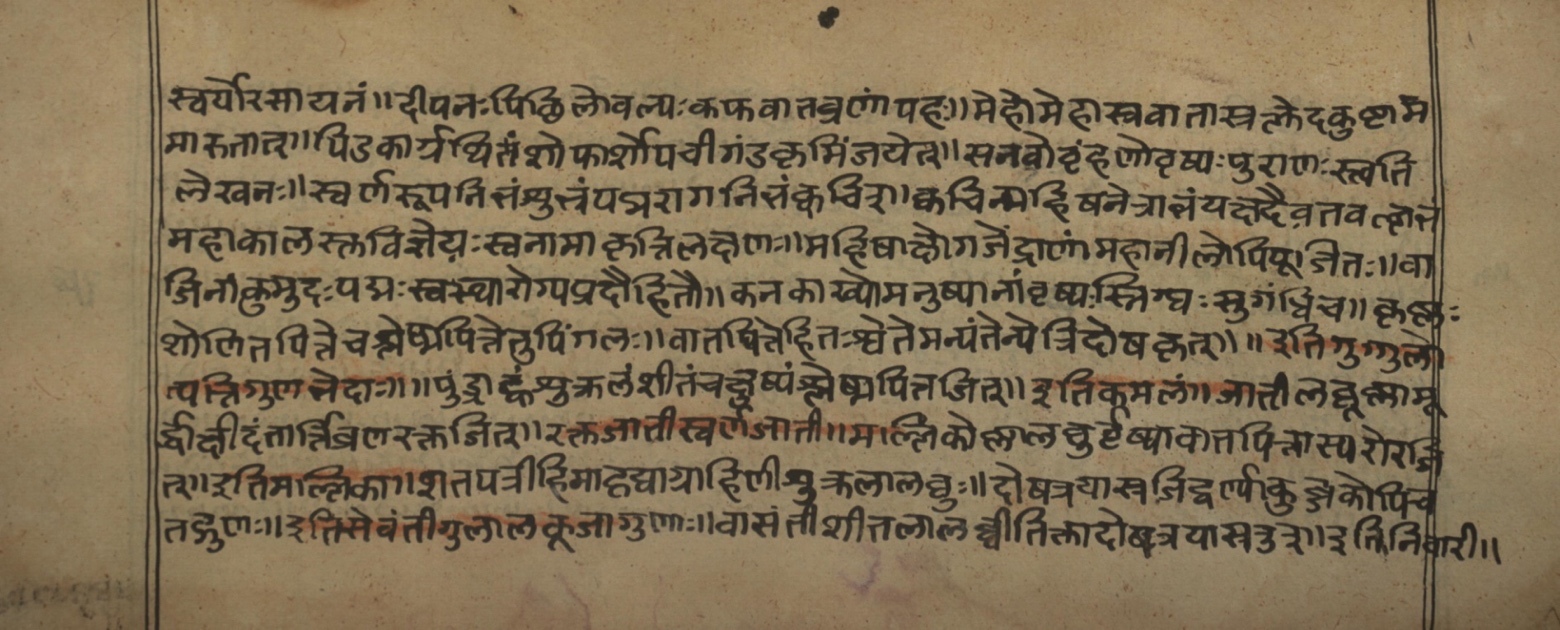 स्वर्योरसायनं॥दीपनःपिछिलोवल्यःकफवातव्रणांपहः॥मेहोमेहास्रवातास्रक्लेदकुष्टाम
मारुतात्॥पिडकार्यथितंशोफार्शोपचीगंडकृमिंजयेत्॥सनवोवृंहणोवृष्यःपुराणःस्त्वति
लेखनः॥स्वर्णरूपनिभंशुभ्रंपद्मरागनिभंक्वचित्॥क्वचिन्महिषनेत्राभंयक्षदैवतवल्लभं
महाकालस्तविज्ञेयःस्वनामाकृतिलक्षणः॥महिषाक्षोगजेंद्राणां महानीलोपिपूजितः॥वा
जिनांकुमुदःपद्मःस्वस्थारोग्यप्रदौहितौ॥कनकाख्योमनुष्यानांवृष्यःस्निग्धःसुगंधिच॥कृष्णः
शोणितपित्तेचश्लेष्मपित्तेतुपिंगलः॥वातपित्तेहितःश्वेतेमन्यंतेन्येत्रिदोषकृत्॥॥इतिगुग्गुलो
त्पत्तिगुणभेदाः॥॥पुंड्राह्वंशुक्रलंशीतंचक्षुष्यंश्लेष्मपित्तजित्॥इतिकमलं॥जातीलघूष्णामू
र्द्धाक्षीदंतार्त्तिव्रणरक्तजित्॥रक्तजातीस्वर्णजाती॥मल्लिकोष्णालघुर्वृष्यावातपित्तास्यरोगजि
त्॥इतिमल्लिका॥शतपत्रीहिमाहृद्याग्राहिणीशुक्रलालघुः॥दोषत्रयास्रजिद्वर्ण्याकुब्जकोपिच
तद्गुणः॥इतिसेवंतीगुलालकूजागुणाः॥वासंतीशीतलालघ्वीतिक्तादोषत्रयास्रनुत्॥इतिनिवारी॥